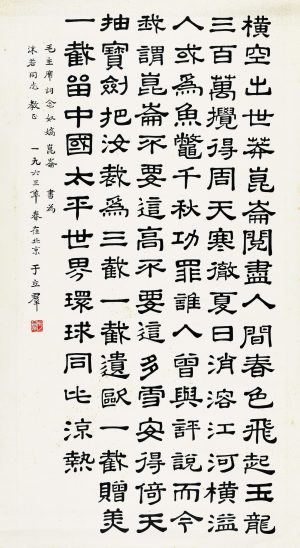 橫空出世莽崑崙閱盡人間春色飛起玉龍
三百萬攪得周天寒徹夏日消溶江河橫溢
人或為魚鱉千秋功罪誰人曾與評說而今
我謂崑崙不要這高不要這多雪安得倚天
抽寶劍把汝裁為三截一截遺歐一截贈美
一截留中國太平世界環球同此涼熱
毛主席詞念奴嬌 崑崙 書為
沫若同志 教正 一九六三年 春在北京 于立羣